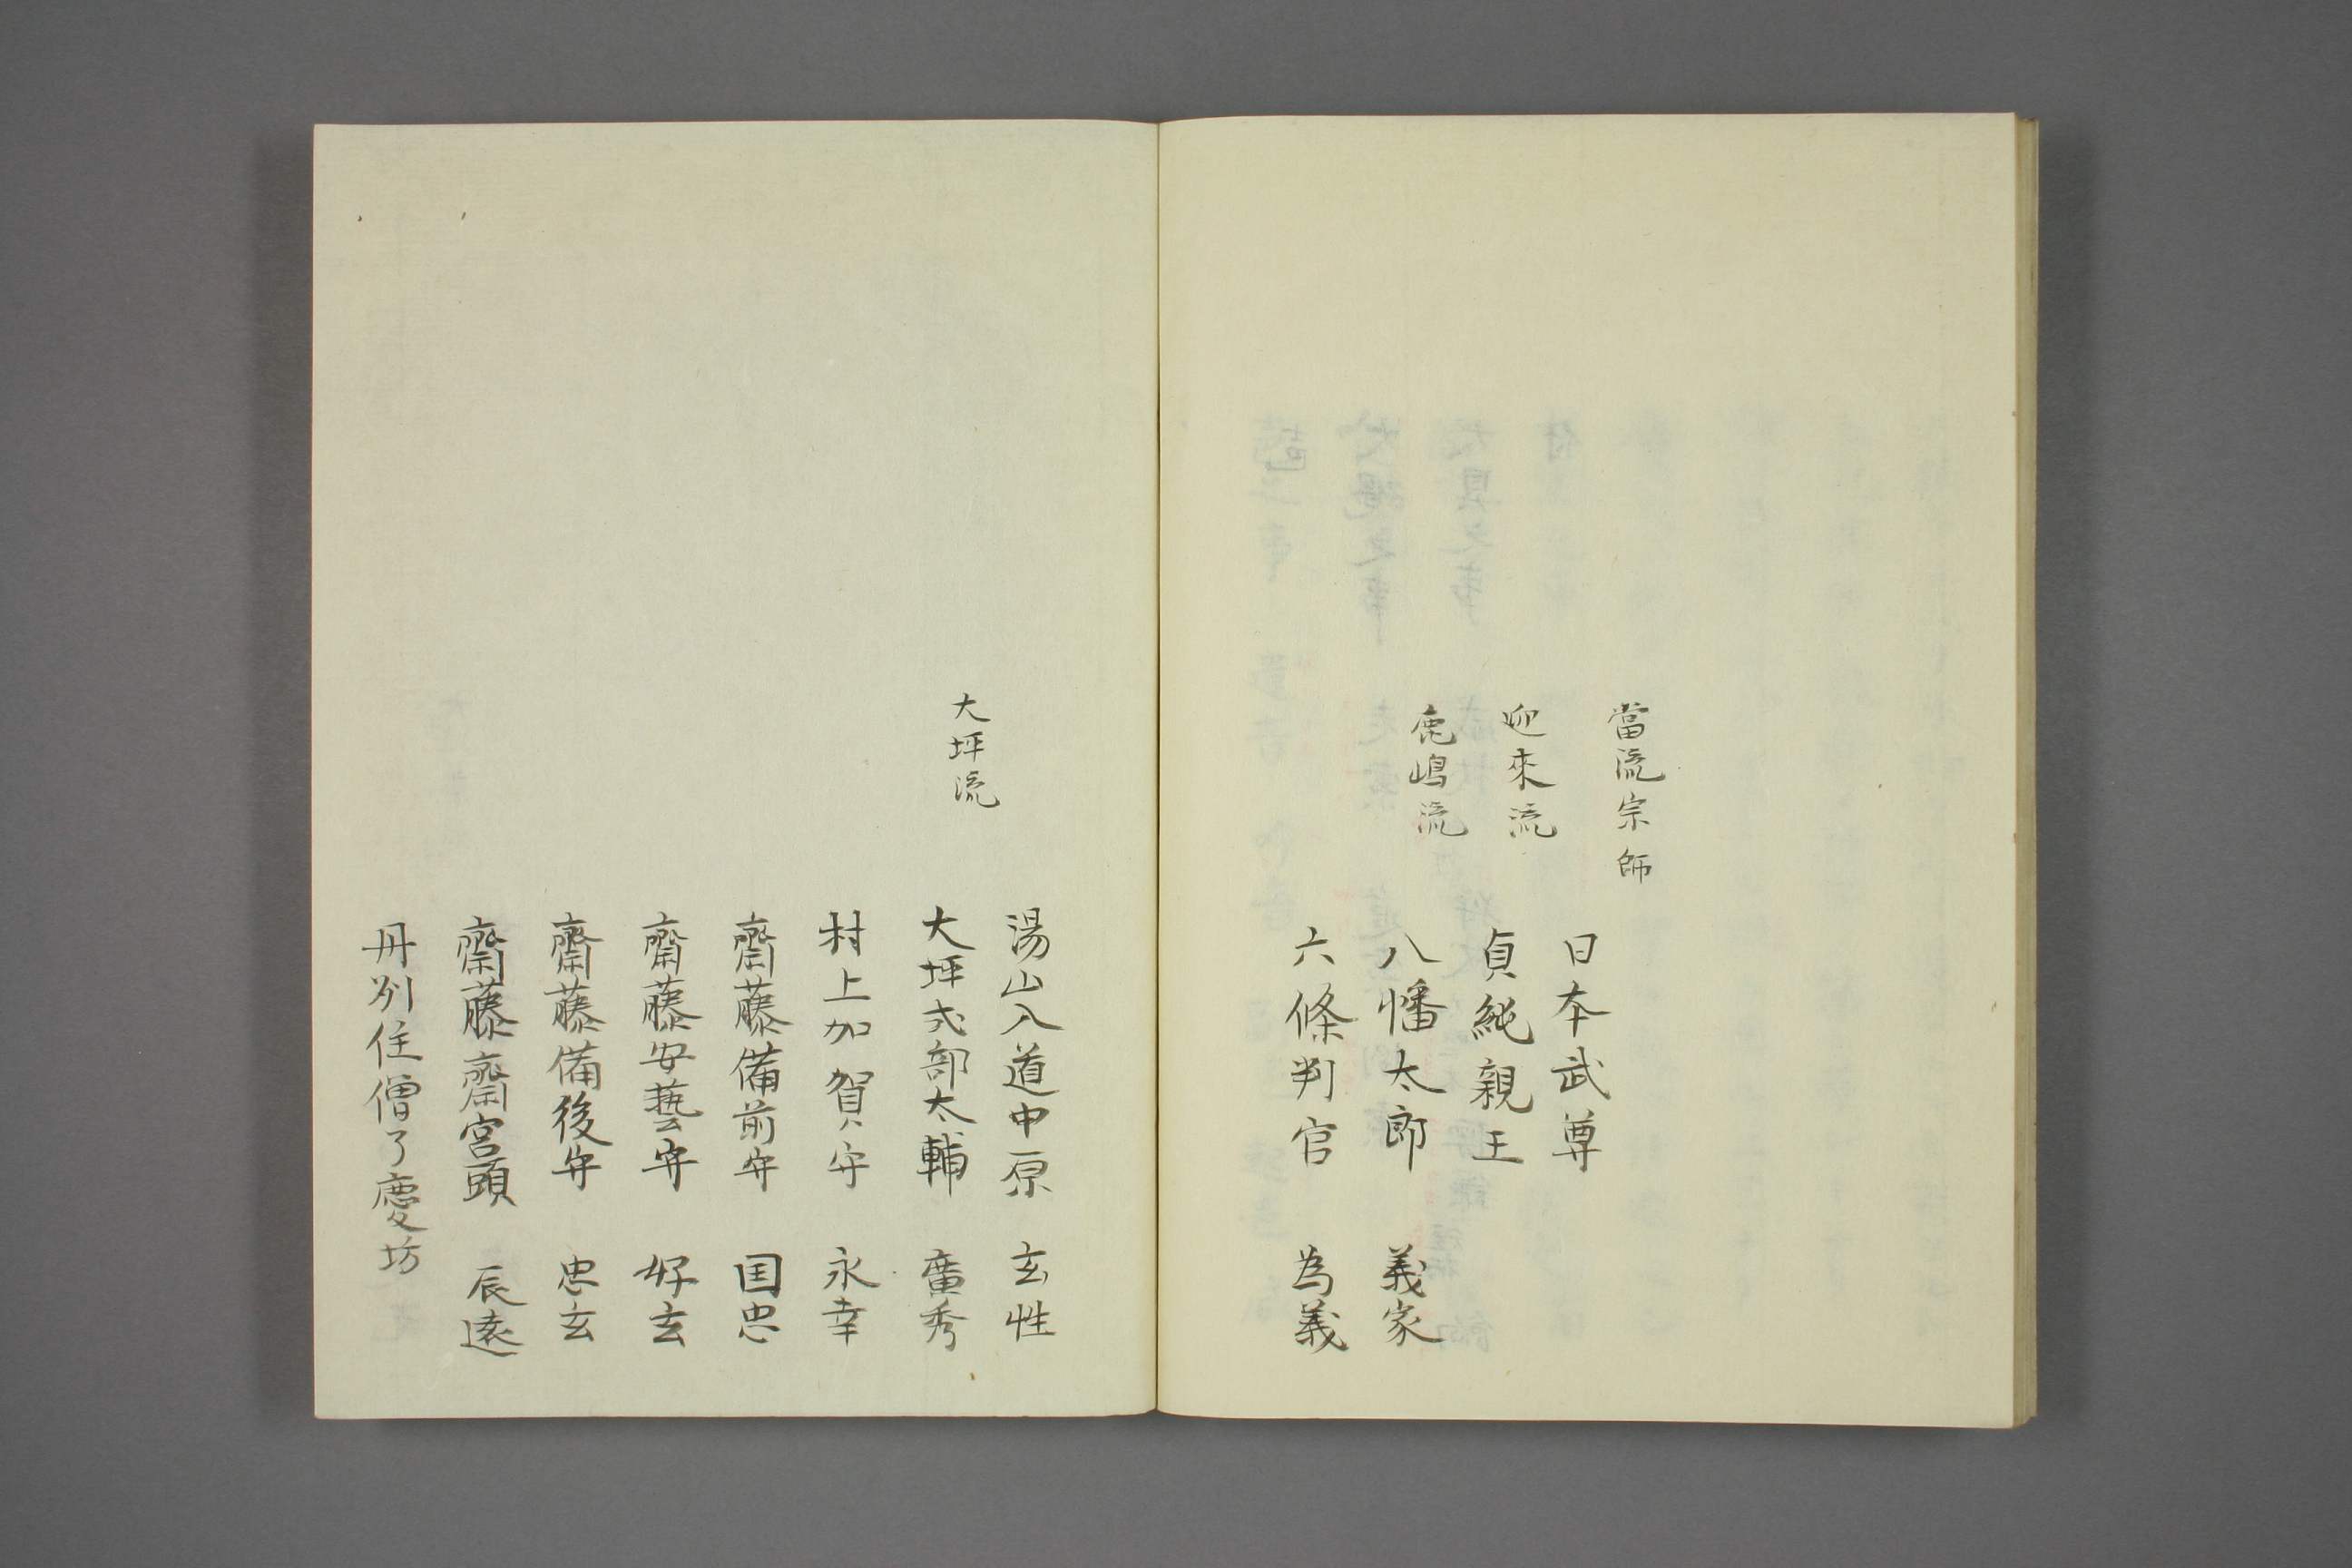 當流宗師
日本武尊
迎來流
貞純親王
鹿嶋流
八幡太郎 義家
六條判官 為義
湯山入道中原 玄性
大坪流
大坪式部太輔 廣秀
村上加賀守 永幸
齋藤備前守 国忠
齋藤安藝守 好玄
齋藤備後守 忠玄
齋藤齋宮頭 辰遠
丹州住僧了慶坊